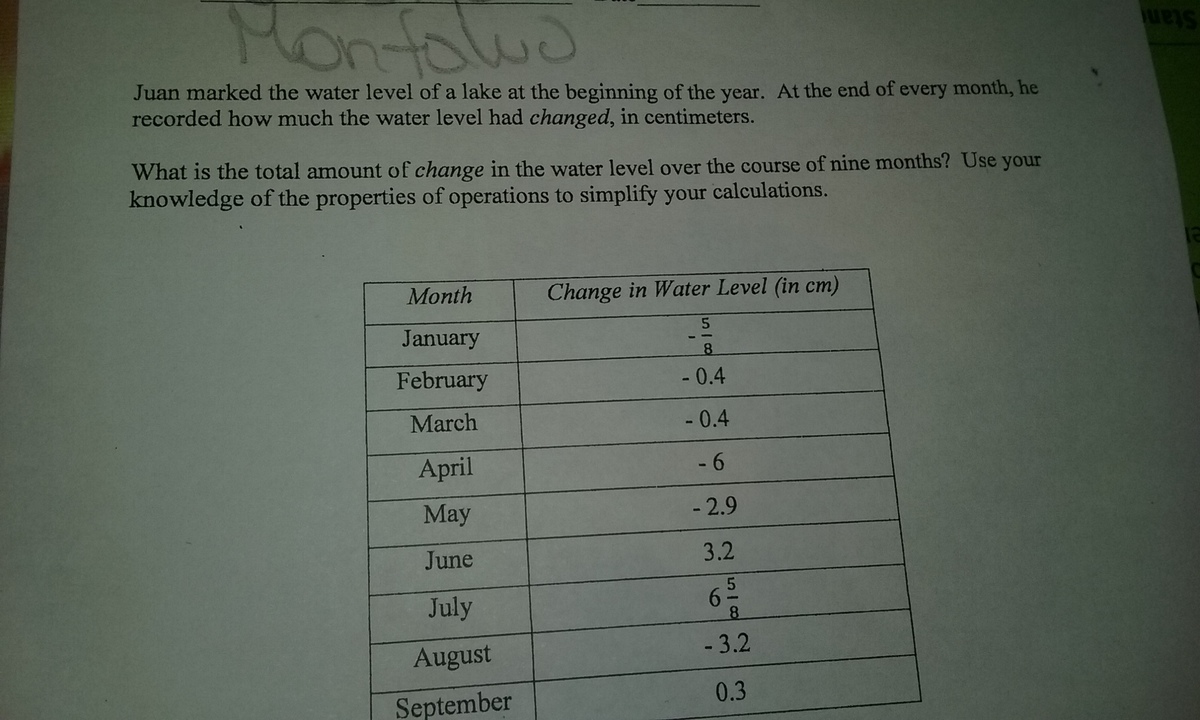 Juan marked the water level of a lake at the beginning of the year. At the end of every month, he
recorded how much the water level had changed, in centimeters.
What is the total amount of change in the water level over the course of nine months? Use your
knowledge of the properties of operations to simplify your calculations.
Month Change in Water Level (in cm)
January - 5/8
February - 0.4
March - 0.4
April - 6
May - 2.9
June 3.2
July 6 5/8
August - 3.2
September 0.3